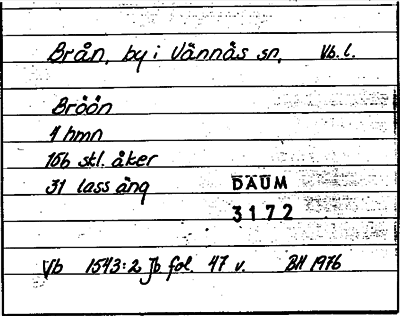 Brån, by i Vännäs sn, Vb. l.
Bröön
4 hmn
16b skl. åker
31 lass äng
DAUM
3172
Vb 1543:2 Jb fol. 47 v. BH 1976